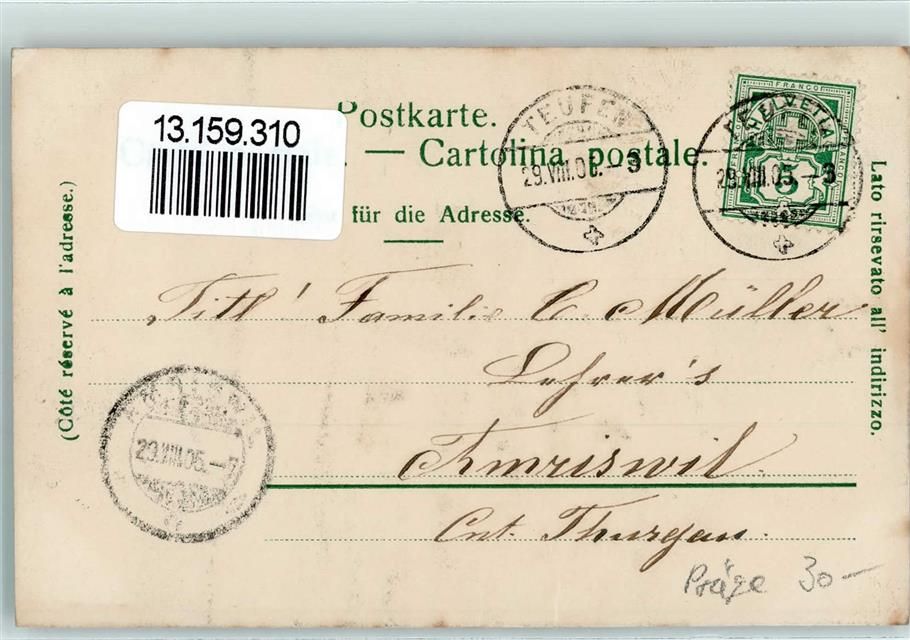 13.159.310
Postkarte.
— Cartolina postale.
für die Adresse.
(Côté réservé à l'adresse.)
Lato rirsevato all' indirizzo.
TEUFEN
29.VIII.05.–3
FRANCO
HELVETIA
5
29.VIII.05.–3
Titl! Familie C. Müller
Lehrer's
Amriswil.
Cnt. Thurgau.
AMRISWIL
29.VIII.05.–7
Präge 30–